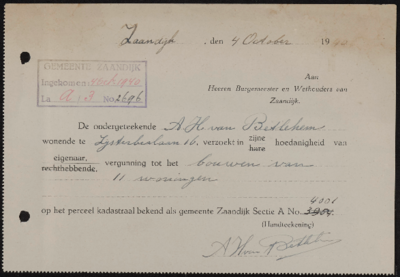 Zaandijk, den 4 October 19
GEMEENTE ZAANDIJK
Ingekomen 4 Oct. 1940
La A 3 No. 2696
Aan
Heeren Burgemeester en Wethouders van
Zaandijk.
De ondergeteekende A.H. van Betlehem
wonende te 16, verzoekt in zijne hoedanigheid van
hare
eigenaar, vergunning tot het bouwen van
rechthebbende,
11 woningen
4001
op het perceel kadastraal bekend als gemeente Zaandijk Sectie A No. 3984.
(Handteekening)